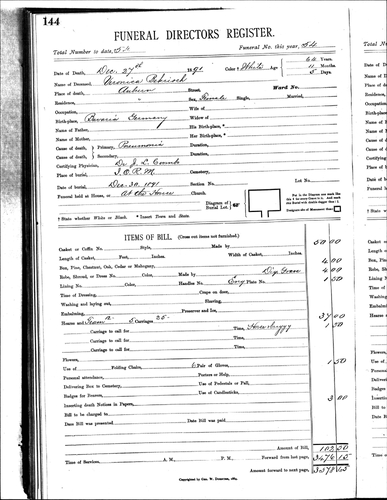 144
FUNERAL DIRECTORS REGISTER.
Total Number to date, 54 Funeral No. this year, 54
Date of Death, Dec. 27th 1891 Color † White Age 62 Years
11 Months
5 Days
Name of Deceased, Veronica
Place of death, Auburn Street, Ward No.
Residence, Sex, Female Single, Married,
Occupation, Wife of
Birth-place, Bavaria Germany Widow of
Name of Father, His Birth-place, *
Name of Mother, Her Birth-place, *
Cause of death, Primary, Pneumonia Duration,
Cause of death, Secondary, Duration,
Certifying Physician, Dr J. L. Coombs
Place of burial, Cemetery,
Date of burial, Dec. 30. 1891 Section No. Lot No.
Funeral held at House, or At the House Church. Diagram of Burial Lot
† State whether White or Black. * Insert Town and State.
ITEMS OF BILL. (Cross out items not furnished.)
Casket or Coffin No. Style, Made by 50 00
Length of Casket, Feet, Inches, Width of Casket, Inches,
Box, Pine, Chestnut, Oak, Cedar or Mahogany, 4 00
Robe, Shroud, or Dress No. Color, Made by 4 00
Lining No. Color, Handles No. Plate No. 1 50
Time of Dressing, Crape on door,
Washing and laying out, Shaving,
Embalming, Preserver and Ice,
Hearse and Carriages 25 37 00
Carriage to call for Time, 1 50
Carriage to call for Time,
Carriage to call for Time,
Flowers,
Use of Folding Chairs, 6 Pair of Gloves, 1 50
Personal attendance, Posture or Help,
Delivering Box to Cemetery, Use of Pedestals or Pall,
Badges for Bearers, Use of Candlesticks,
Inserting death Notices in Papers, 3 00
Bill to be charged to
Date Bill was presented Date Bill was paid
Amount of Bill, 102 50
Time of Services, A. M., P. M., Forward from last page,
Amount forward to next page,